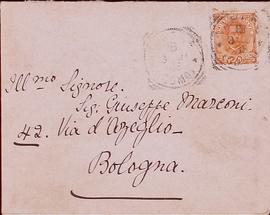 Ill.mo Signore.
Sig. Giuseppe Marconi.
42. Via d'Azeglio
Bologna.